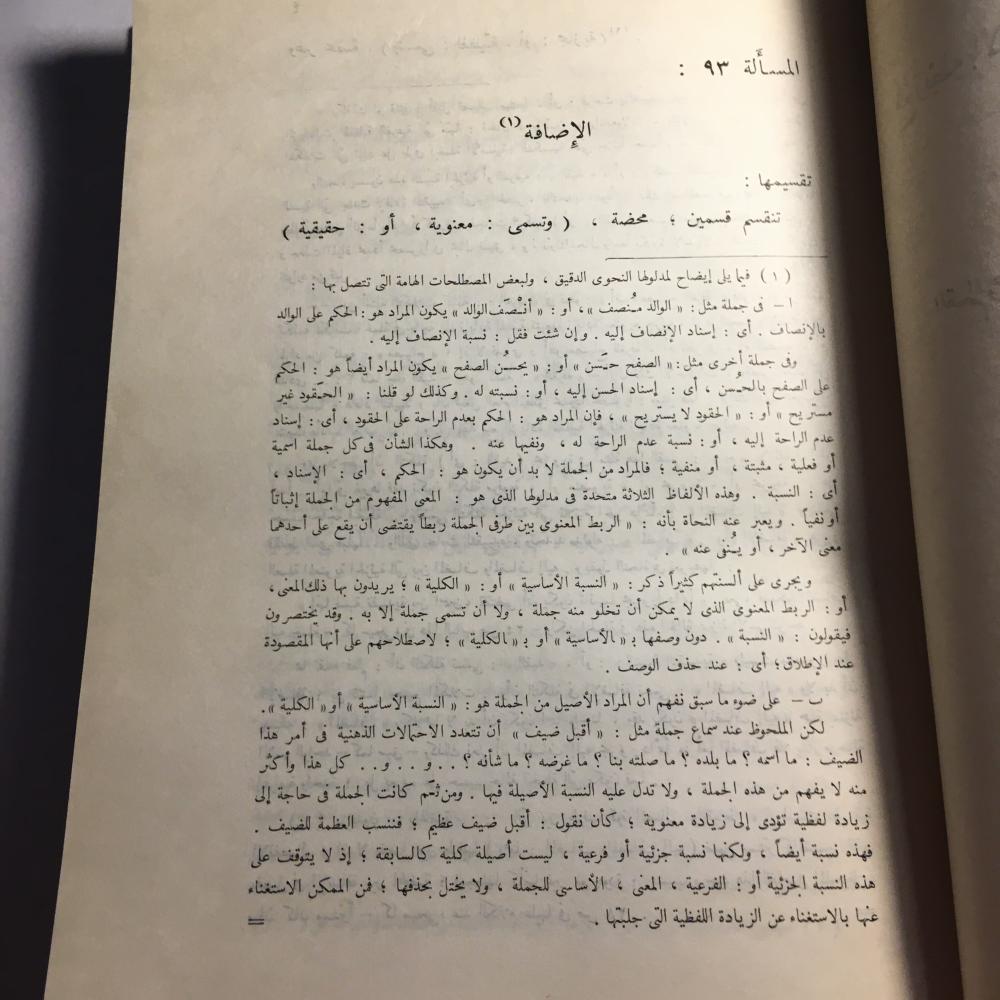 المسألة ٩٣ :
الإضافة (١)
تقسيمها :
تنقسم قسمين ؛ محضة ، ( وتسمى : معنوية ، أو : حقيقية )
( ١ ) فيما يلى إيضاح لمدلولها النحوى الدقيق ، ولبعض المصطلحات الهامة التى تتصل بها :
ا – فى جملة مثل : « الوالد مُنصف » ، أو : « أنْصَف الوالد » يكون المراد هو : الحكم على الوالد
بالإنصاف . أى : إسناد الإنصاف إليه . وإن شئت فقل : نسبة الإنصاف إليه .
وفى جملة أخرى مثل : « الصفح حَسَن » أو : « يحسُن الصفح » يكون المراد أيضاً هو : الحكم
على الصفح بالحُسن ، أى : إسناد الحسن إليه ، أو : نسبته له . وكذلك لو قلنا : « الحَقود غير
مستريح » أو : « الحقود لا يستريح » ، فإن المراد هو : الحكم بعدم الراحة على الحقود ، أى : إسناد
عدم الراحة إليه ، أو : نسبة عدم الراحة له ، ونفيها عنه . وهكذا الشأن فى كل جملة اسمية
أو فعلية ، مثبتة ، أو منفية ؛ فالمراد من الجملة لا بد أن يكون هو : الحكم ، أى : الإسناد ،
أى : النسبة . وهذه الألفاظ الثلاثة متحدة فى مدلولها الذى هو : المعنى المفهوم من الجملة إثباتاً
أو نفياً . ويعبر عنه النحاة بأنه : « الربط المعنوى بين طرفى الجملة ربطاً يقتضى أن يقع على أحدهما
معنى الآخر ، أو يُنفى عنه » .
ويجرى على ألسنتهم كثيراً ذكر : « النسبة الأساسية » أو : « الكلية » ؛ يريدون بها ذلك المعنى ،
أو : الربط المعنوى الذى لا يمكن أن تخلو منه جملة ، ولا أن تسمى جملة إلا به . وقد يختصرون
فيقولون : « النسبة » . دون وصفها بـ « الأساسية » أو بـ « الكلية » ؛ لاصطلاحهم على أنها المقصودة
عند الإطلاق ؛ أى : عند حذف الوصف .
ب – على ضوء ما سبق نفهم أن المراد الأصيل من الجملة هو : « النسبة الأساسية » أو « الكلية » .
لكن الملحوظ عند سماع جملة مثل : « أقبل ضيف » أن تتعدد الاحتمالات الذهنية فى أمر هذا
الضيف : ما اسمه ؟ ما بلده ؟ ما صلته بنا ؟ ما غرضه ؟ ما شأنه ؟ . . و . . و . . كل هذا وأكثر
منه لا يفهم من هذه الجملة ، ولا تدل عليه النسبة الأصيلة فيها . ومن ثَم كانت الجملة فى حاجة إلى
زيادة لفظية تؤدى إلى زيادة معنوية ؛ كأن نقول : أقبل ضيف عظيم ؛ فننسب العظمة للضيف .
فهذه نسبة أيضاً ، ولكنها نسبة جزئية أو فرعية ، ليست أصيلة كلية كالسابقة ؛ إذ لا يتوقف على
هذه النسبة الجزئية أو : الفرعية ، المعنى ، الأساسى للجملة ، ولا يختل بحذفها ؛ فمن الممكن الاستغناء
عنها بالاستغناء عن الزيادة اللفظية التى جلبتها . =